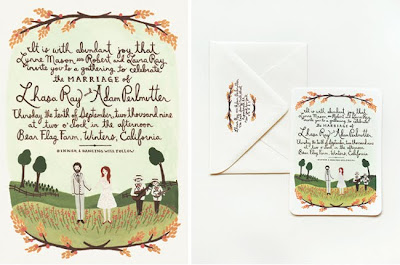 It is with abundant joy that
Lynne Mason and Robert and Laura Ray
invite you to a gathering to celebrate
the MARRIAGE of
Lhasa Ray and Adam Perlmutter
Thursday the tenth of September, two thousand nine
at two o'clock in the afternoon
Bear Flag Farm, Winters, California
DINNER & DANCING WILL FOLLOW
It is with abundant joy that
Lynne Mason and Robert and Laura Ray
invite you to a gathering to celebrate
the MARRIAGE of
Lhasa Ray and Adam Perlmutter
Thursday the tenth of September, two thousand nine
at two o'clock in the afternoon
Bear Flag Farm, Winters, California